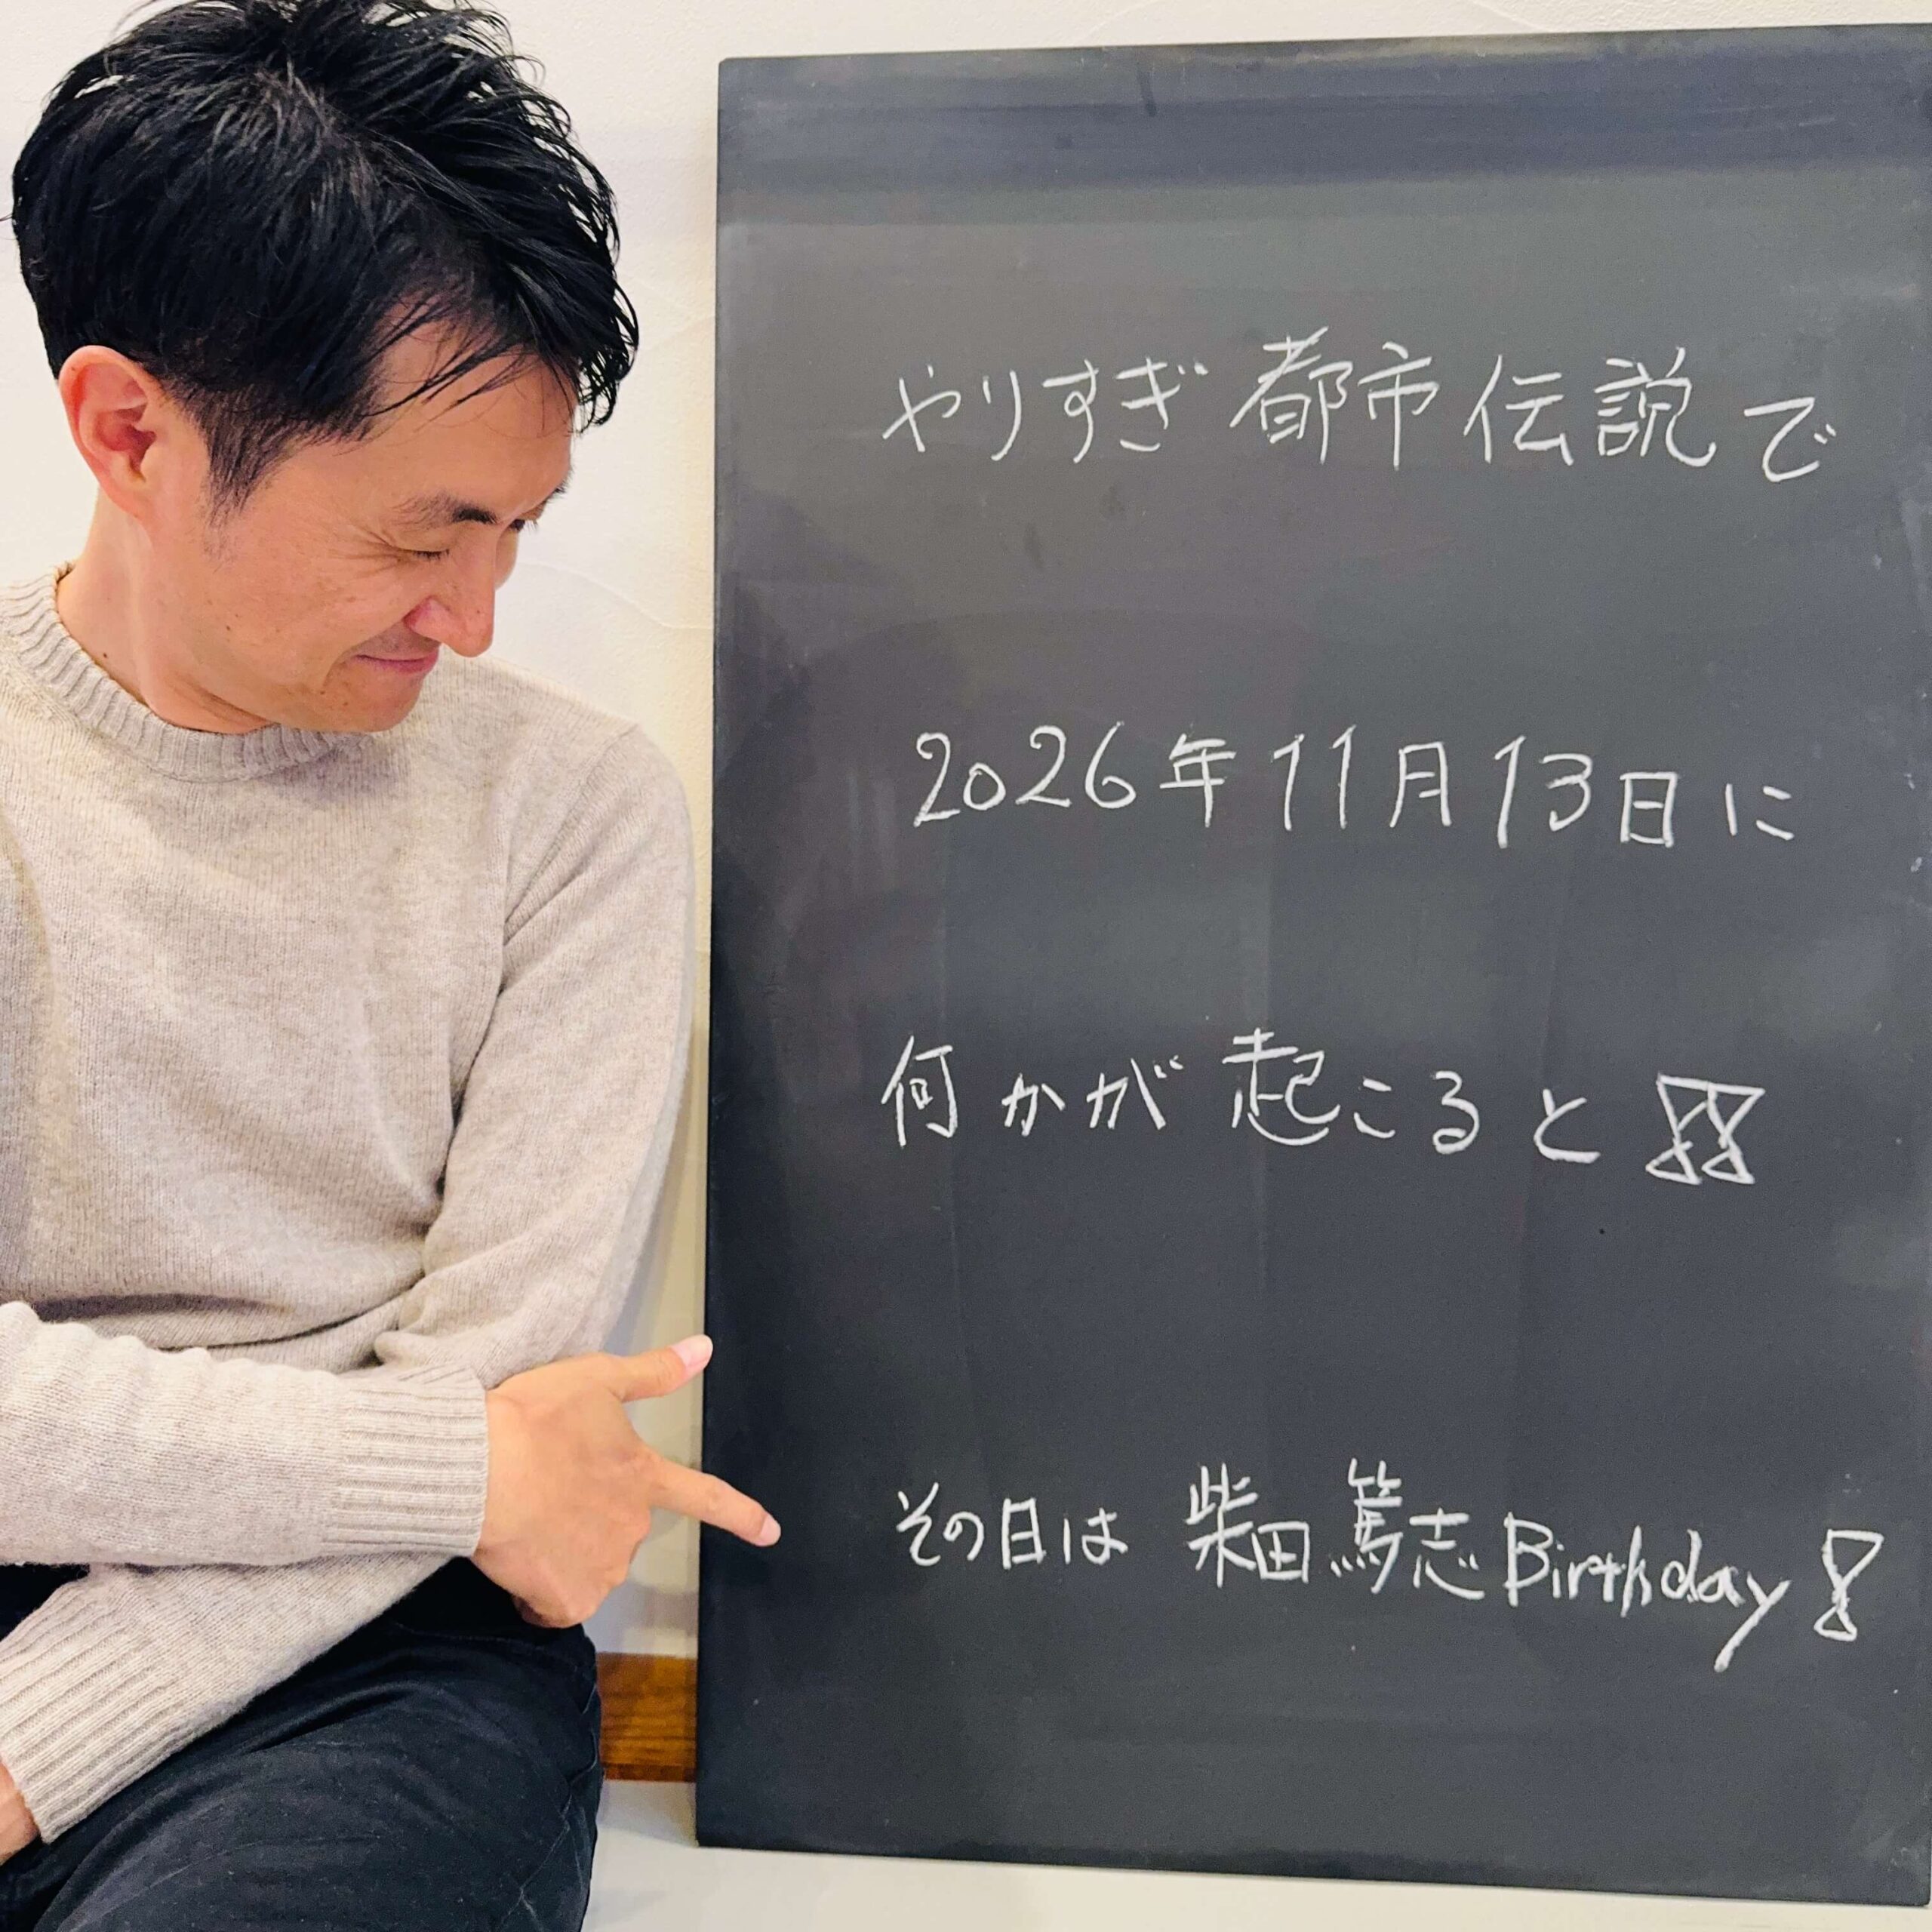 やりすぎ都市伝説で
2026年11月13日に
何かが起こると!!
その日は 柴田篤志Birthday!